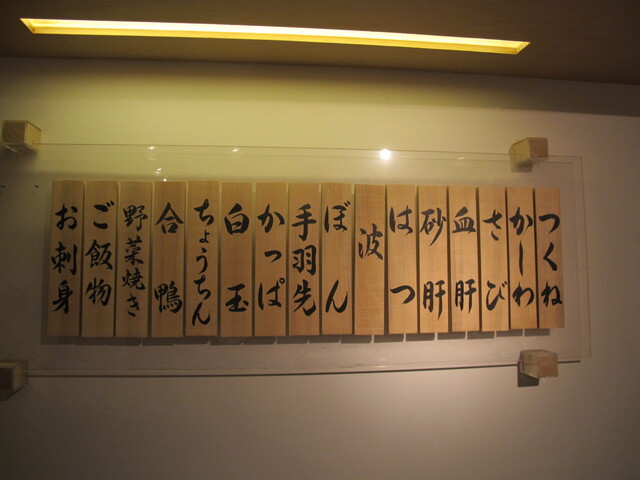 つくね
かしわ
さび
血肝
砂肝
はつ
波
ぼん
手羽先
かっぱ
白玉
ちょうちん
合鴨
野菜焼き
ご飯物
お刺身